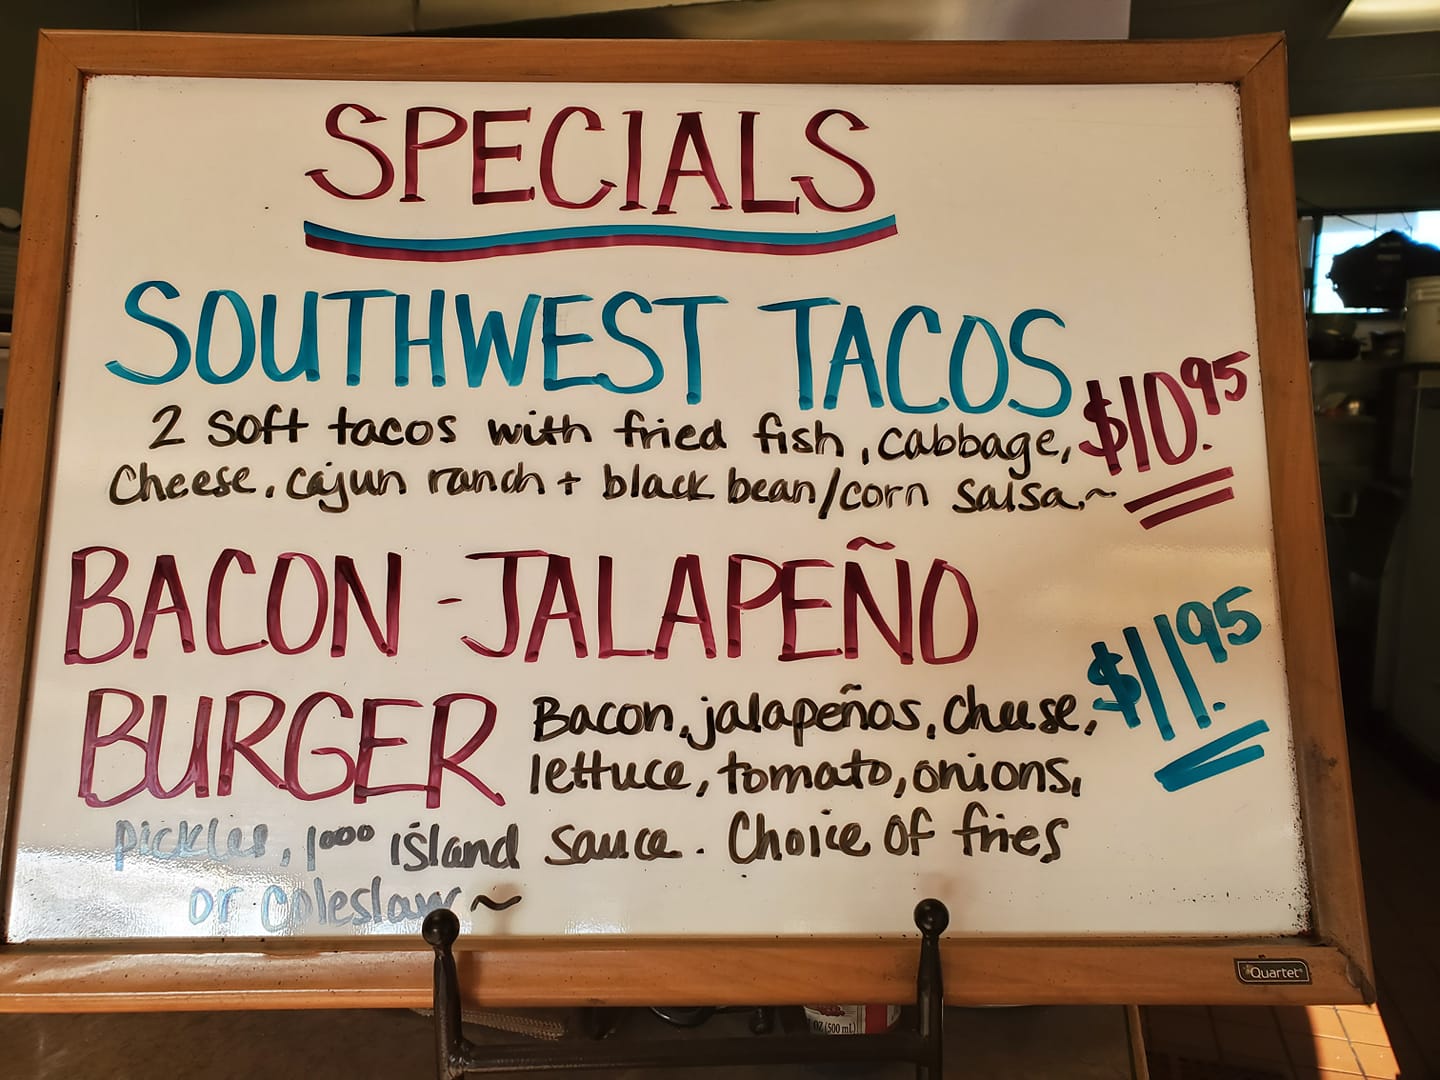 SPECIALS
SOUTHWEST TACOS
2 soft tacos with fried fish, cabbage, $10.95
Cheese, cajun ranch + black bean/corn salsa.~
BACON-JALAPEÑO
BURGER Bacon, jalapeños, cheese, $11.95
lettuce, tomato, onions,
pickles, 1000 island sauce. Choice of fries
or coleslaw~
Quartet
OZ (500 mL)